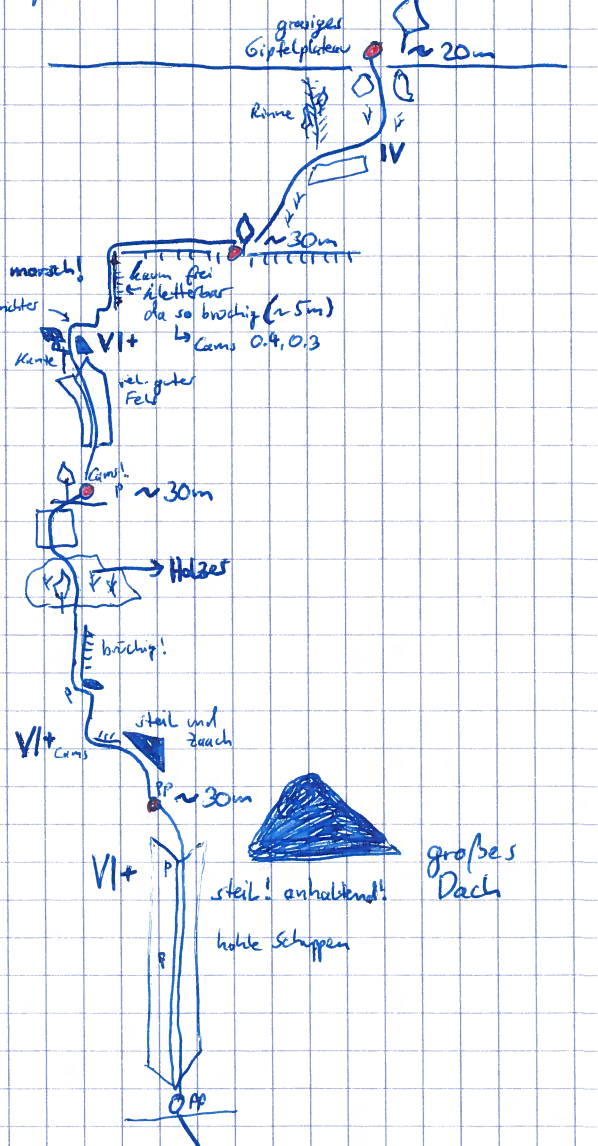 grasiges
Gipfelplateau
~ 20m
Rinne
IV
~30m
morsch!
kaum frei
kletterbar
da so brüchig (~5m)
↳ Cams 0.4, 0.3
VI+
Kante
rel. guter
Fels
Cams!
P
~ 30m
→ Holzer
brüchig!
P
steil und
zaach
VI+
Cams
PP
~ 30m
großes
Dach
VI+
P
steil! anhaltend!
hohle Schuppen
P
PP